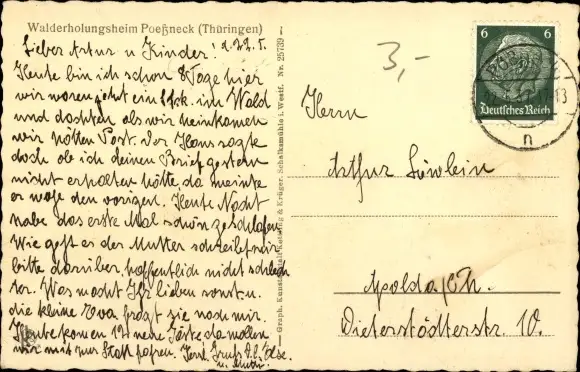 Walderholungsheim Poeßneck (Thüringen)
Lieber Artur u Kinder! d. 22. 5.
Heute bin ich schon 8 Tage hier
wir waren jetzt ein Stck. im Wald
und dachten als wir heimkamen
wir hätten Post. Der Hans sagte
doch ob ich deinen Brief gestern
nicht erhalten hätte, da meinte
er wohl den vorigen. Heute Nacht
habe das erste Mal schön geschlafen
Wie geht es der Mutter schreibt mir
bitte darüber, hoffentlich nicht schlech
ter. Was macht Ihr lieben sonst u.
die kleine Eva fragt sie nach mir.
Heute komen 12 neue Gäste da wollen
wir mit zur Stadt Herzl. Gruß Else
u. Mutti.
3,-
Herrn
Arthur Löwlein
Apolda /Th.
Dieterstädterstr. 10.
6 6
Deutsches Reich
n
Graph. Kunstanstalt & Krüger, Schalksmühle i. Westf. Nr. 25739